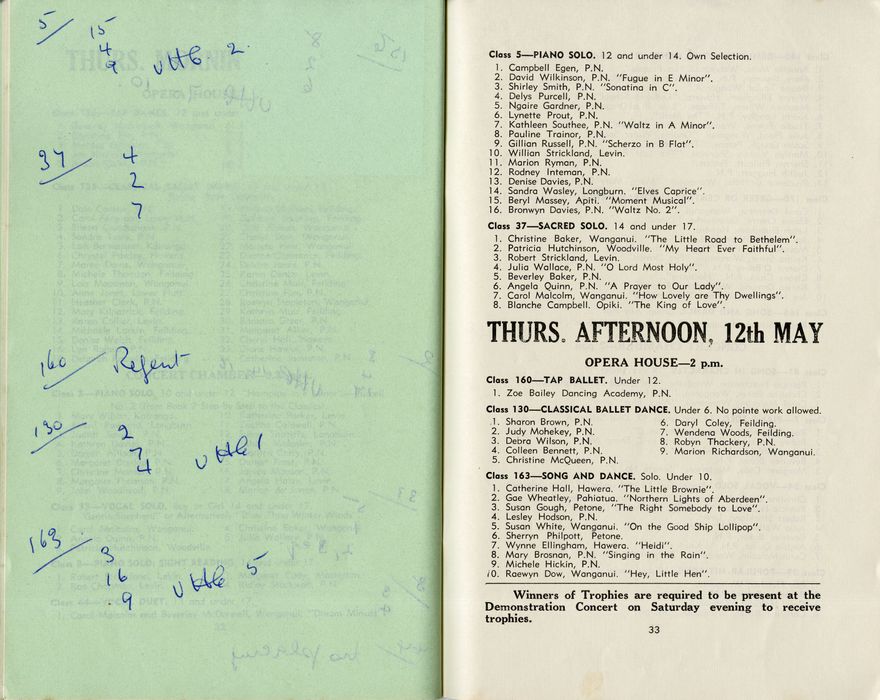 5/
15
4
9 VHC 2.
37/
4
2
7
160/ Regent
130/
2
7
4 VHC 1
163/
3
16
9 VHC 5
Class 5—PIANO SOLO. 12 and under 14. Own Selection.
1. Campbell Egen, P.N.
2. David Wilkinson, P.N. "Fugue in E Minor".
3. Shirley Smith, P.N. "Sonatina in C".
4. Delys Purcell, P.N.
5. Ngaire Gardner, P.N.
6. Lynette Prout, P.N.
7. Kathleen Southee, P.N. "Waltz in A Minor".
8. Pauline Trainor, P.N.
9. Gillian Russell, P.N. "Scherzo in B Flat".
10. Willian Strickland, Levin.
11. Marion Ryman, P.N.
12. Rodney Inteman, P.N.
13. Denise Davies, P.N.
14. Sandra Wasley, Longburn. "Elves Caprice".
15. Beryl Massey, Apiti. "Moment Musical".
16. Bronwyn Davies, P.N. "Waltz No. 2".
Class 37—SACRED SOLO. 14 and under 17.
1. Christine Baker, Wanganui. "The Little Road to Bethelem".
2. Patricia Hutchinson, Woodville. "My Heart Ever Faithful".
3. Robert Strickland, Levin.
4. Julia Wallace, P.N. "O Lord Most Holy".
5. Beverley Baker, P.N.
6. Angela Quinn, P.N. "A Prayer to Our Lady".
7. Carol Malcolm, Wanganui. "How Lovely are Thy Dwellings".
8. Blanche Campbell. Opiki. "The King of Love".
THURS. AFTERNOON, 12th MAY
OPERA HOUSE—2 p.m.
Class 160—TAP BALLET. Under 12.
1. Zoe Bailey Dancing Academy, P.N.
Class 130—CLASSICAL BALLET DANCE. Under 6. No pointe work allowed.
1. Sharon Brown, P.N.
2. Judy Mohekey, P.N.
3. Debra Wilson, P.N.
4. Colleen Bennett, P.N.
5. Christine McQueen, P.N.
6. Daryl Coley, Feilding.
7. Wendena Woods, Feilding.
8. Robyn Thackery, P.N.
9. Marion Richardson, Wanganui.
Class 163—SONG AND DANCE. Solo. Under 10.
1. Catherine Hall, Hawera. "The Little Brownie".
2. Gae Wheatley, Pahiatua. "Northern Lights of Aberdeen".
3. Susan Gough, Petone, "The Right Somebody to Love".
4. Lesley Hodson, P.N.
5. Susan White, Wanganui. "On the Good Ship Lollipop".
6. Sherryn Philpott, Petone.
7. Wynne Ellingham, Hawera. "Heidi".
8. Mary Brosnan, P.N. "Singing in the Rain".
9. Michele Hickin, P.N.
10. Raewyn Dow, Wanganui. "Hey, Little Hen".
Winners of Trophies are required to be present at the
Demonstration Concert on Saturday evening to receive
trophies.
33